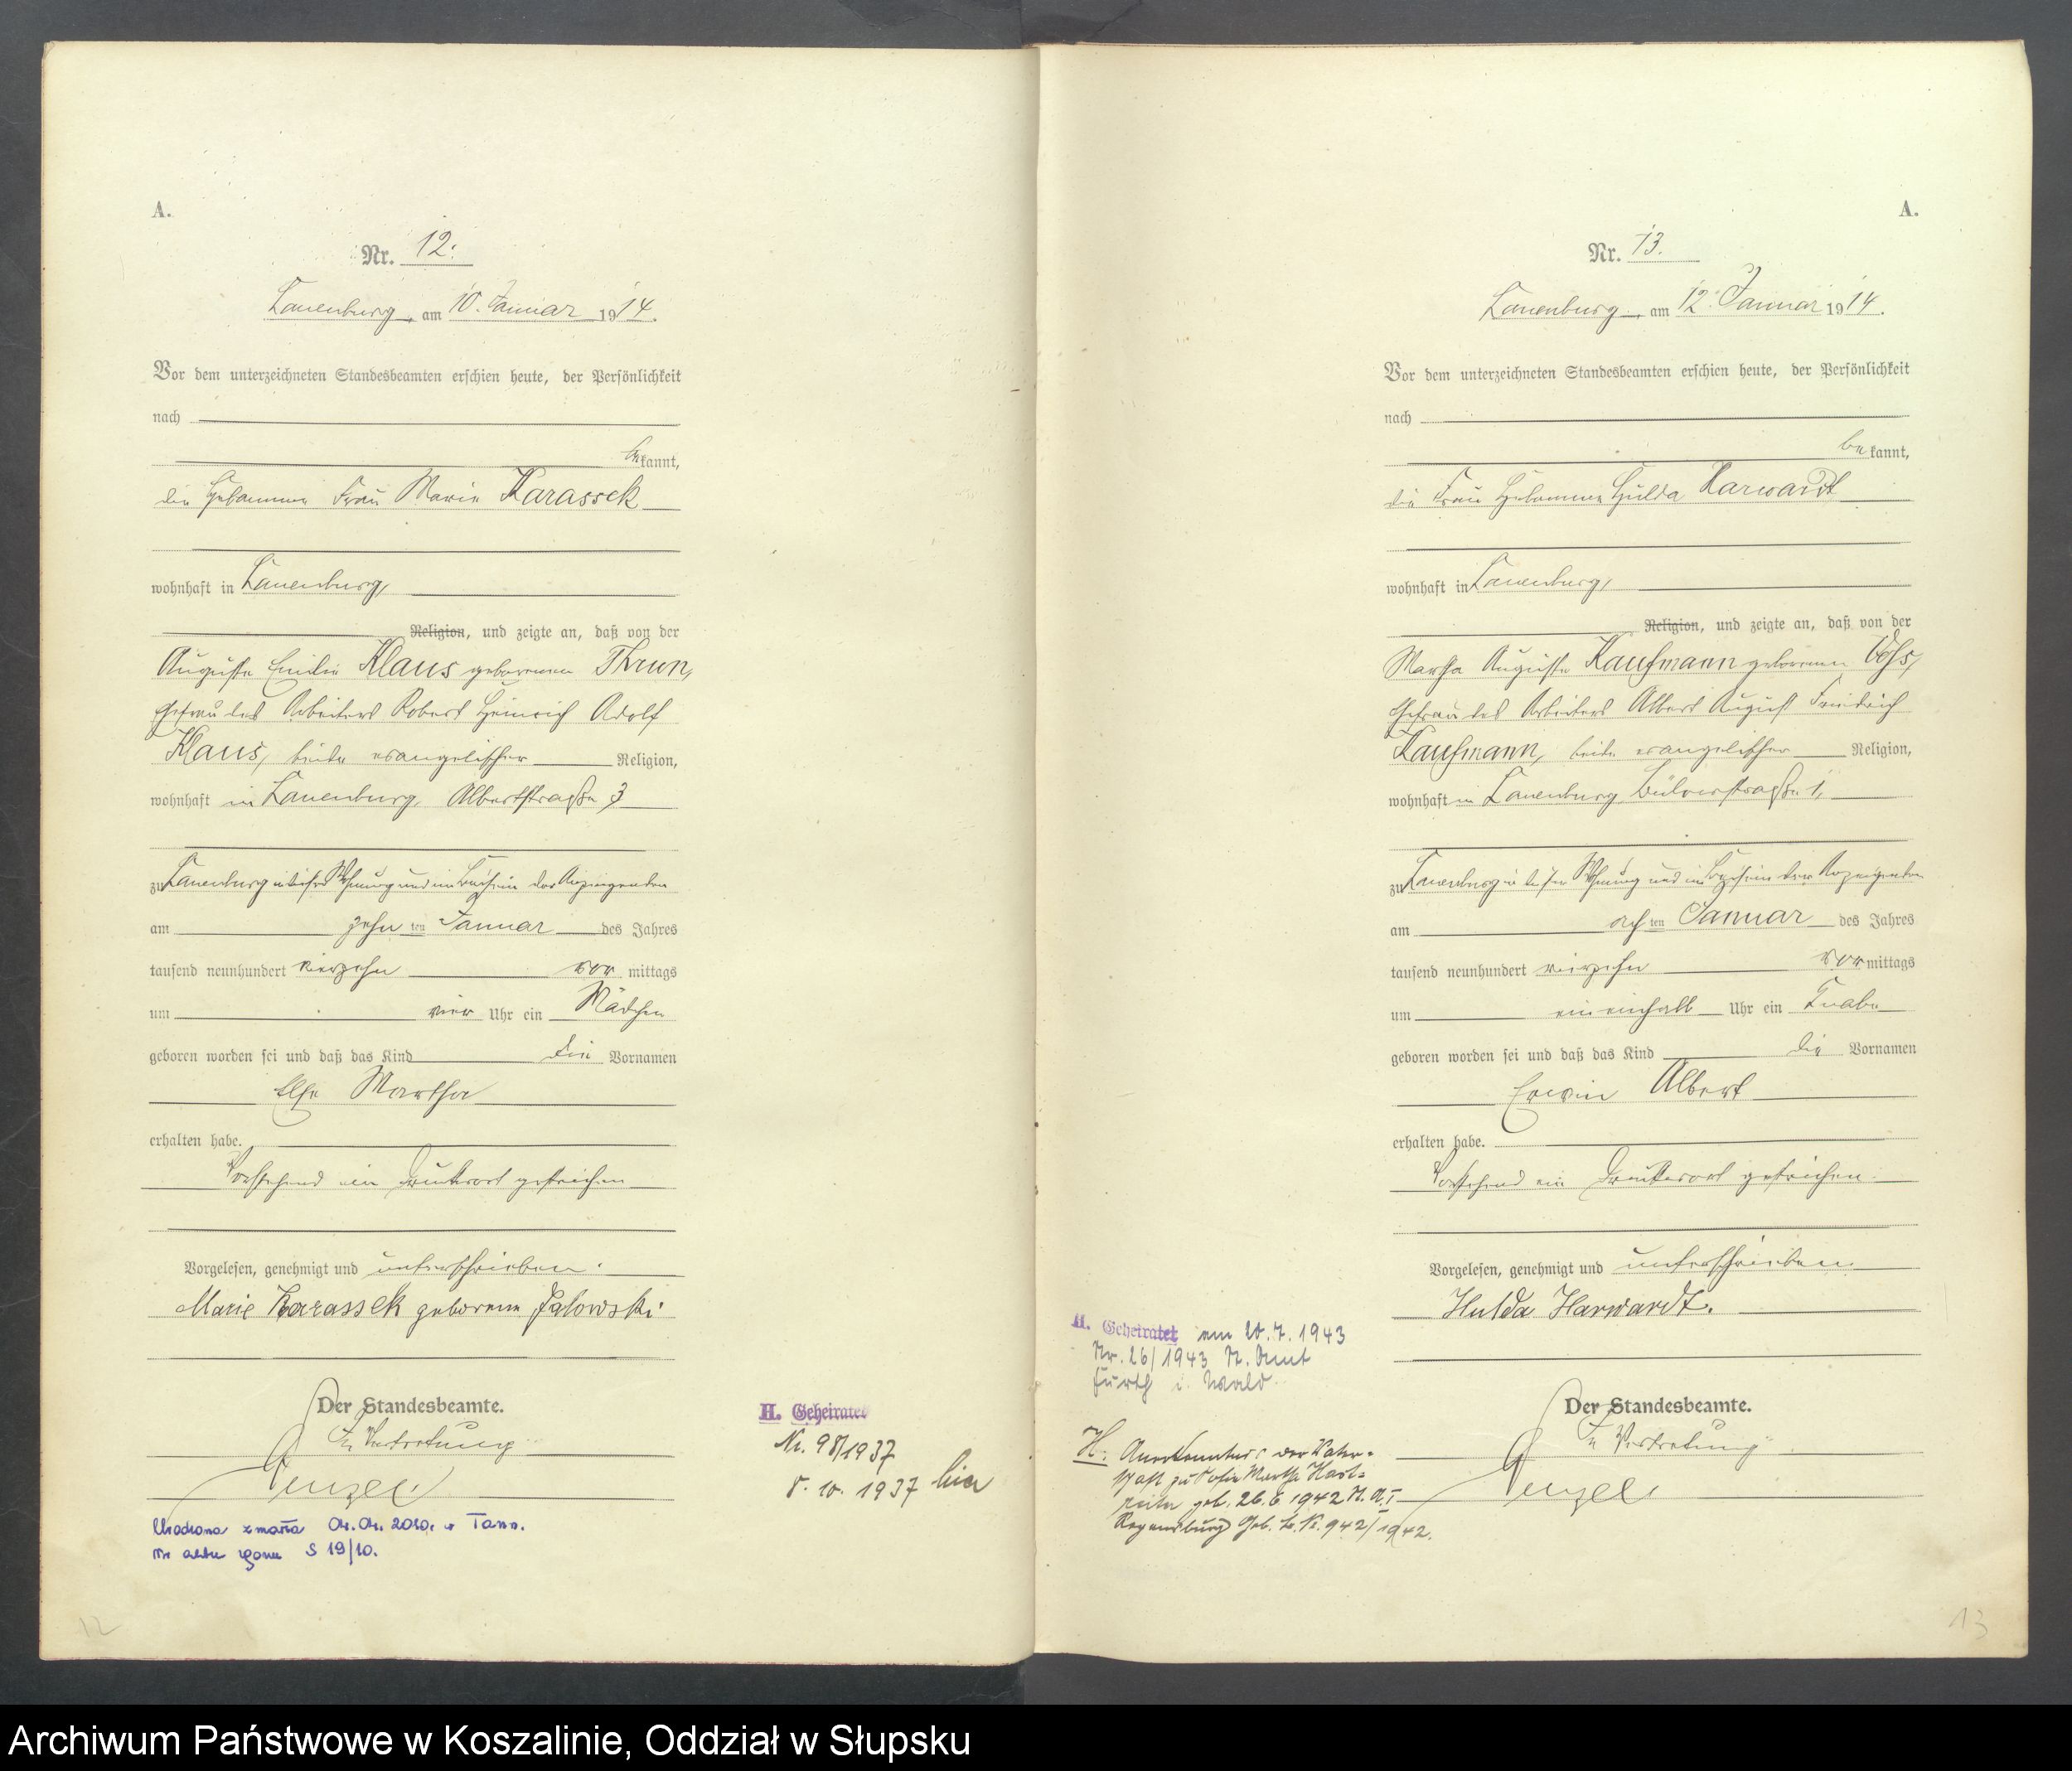 A.
Nr. 12.
Lauenburg, am 10. Januar 1914.
Vor dem unterzeichneten Standesbeamten erschien heute, der Persönlichkeit
nach
bekannt,
die Hebamme Frau Marie Karassek
wohnhaft in Lauenburg,
Religion, und zeigte an, daß von der
Auguste Emilie Klaus geborenen Thrun,
Ehefrau des Arbeiters Robert Heinrich Adolf
Klaus, beide evangelischer Religion,
wohnhaft in Lauenburg, Albertstraße 3
zu Lauenburg in dieser Wohnung und im Beisein der Anzeigenden
am zehn ten Januar des Jahres
tausend neunhundert vierzehn vor mittags
um vier Uhr ein Mädchen
geboren worden sei und daß das Kind die Vornamen
Else Martha
erhalten habe.
Vorstehend ein Druckwort gestrichen
Vorgelesen, genehmigt und unterschrieben.
Marie Karassek geborene Jalowski
Der Standesbeamte.
In Vertretung
Urodzona zmarła 2010. w
Nr aktu zgonu S 19/10.
H. Geheiratet
Nr. 98/1937
10. 1937 hier
12
A.
Nr. 13.
Lauenburg, am 12. Januar 1914.
Vor dem unterzeichneten Standesbeamten erschien heute, der Persönlichkeit
nach
bekannt,
die Frau Hebamme Hulda Harwardt
wohnhaft in Lauenburg,
Religion, und zeigte an, daß von der
Martha Auguste Kaufmann geborenen Voß,
Ehefrau des Arbeiters Albert August Friedrich
Kaufmann, beide evangelischer Religion,
wohnhaft in Lauenburg, Bülowstraße 1,
zu Lauenburg in dieser Wohnung und im Beisein der Anzeigenden
am ach ten Januar des Jahres
tausend neunhundert vierzehn vormittags
um eineinhalb Uhr ein Knabe
geboren worden sei und daß das Kind die Vornamen
Erwin Albert
erhalten habe.
Vorstehend ein Druckwort gestrichen.
Vorgelesen, genehmigt und unterschrieben
Hulda Harwardt.
Der Standesbeamte.
In Vertretung
H. Geheiratet am 20.7.1943
Nr. 26/1943 St. Amt
Furth i. Wald.
H. Anerkenntnis der Vater-
schaft zu Martha
geb. 26.6.1942 St. A. I
Regensburg Geb. Nr. 942/I 1942.
13
Archiwum Państwowe w Koszalinie, Oddział w Słupsku